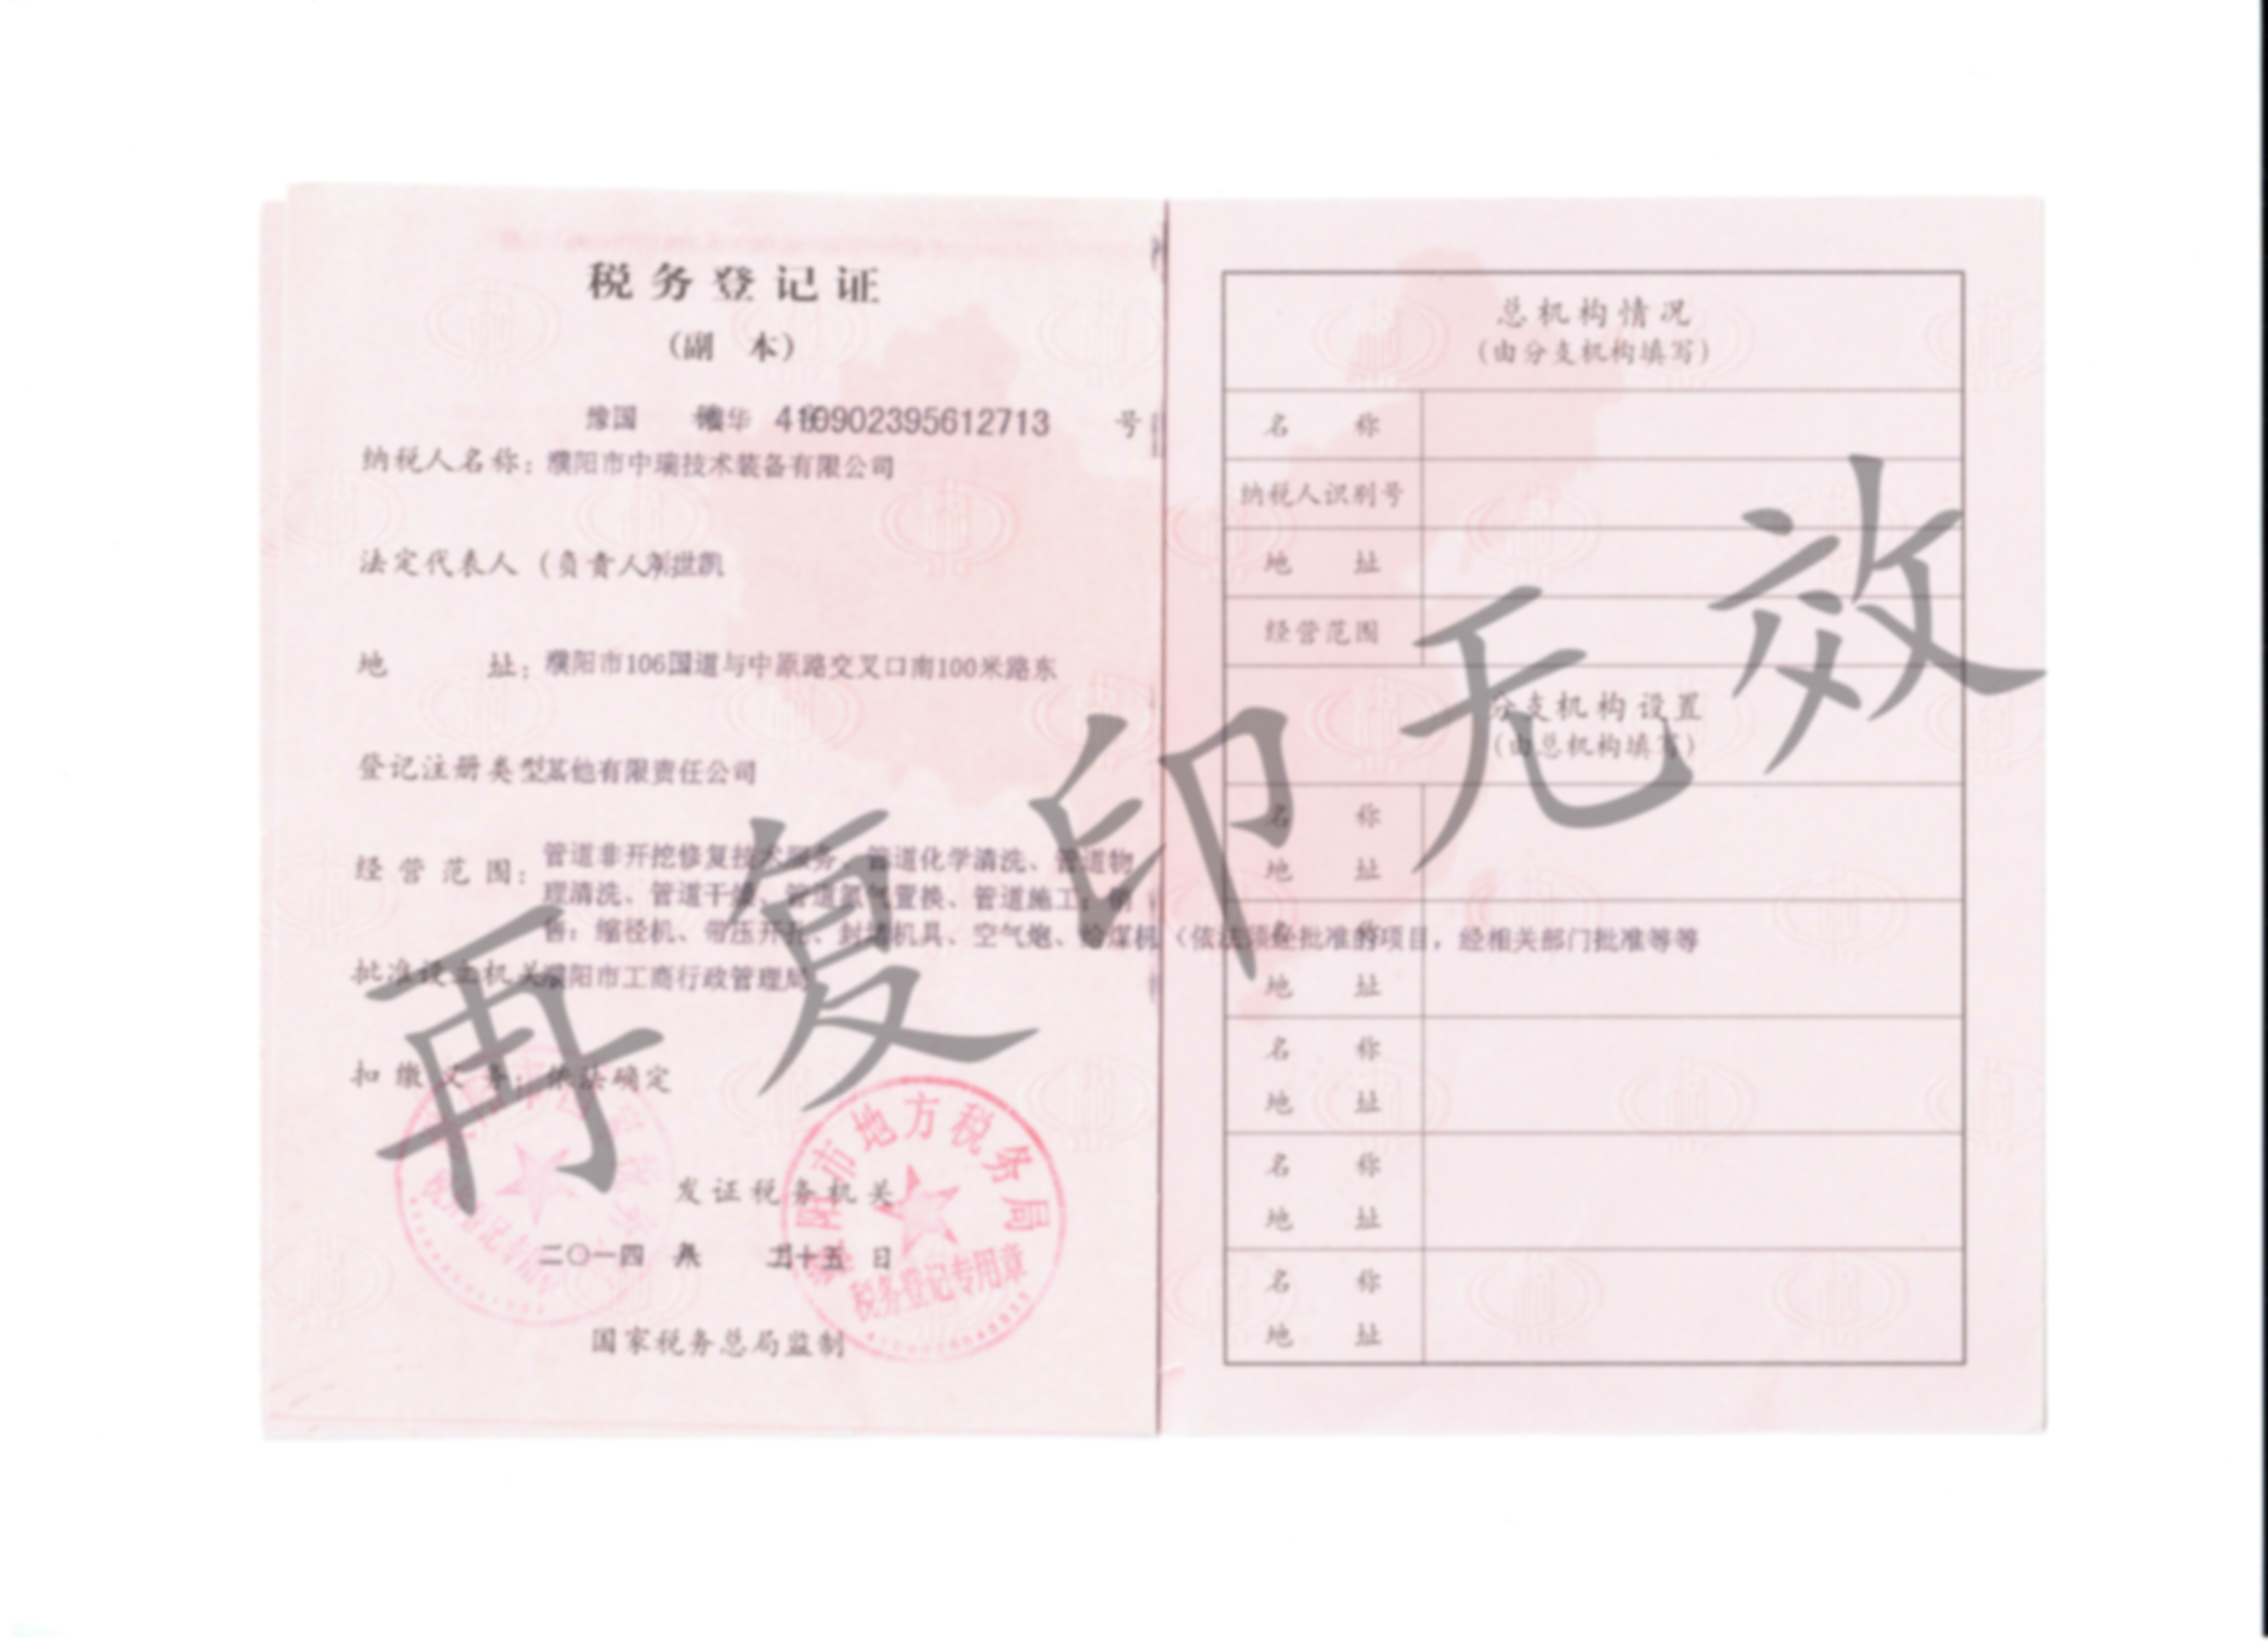 税务登记证
(副 本)
豫国 华 410902395612713 号
纳税人名称：濮阳市中瑞技术装备有限公司
法定代表人（负责人 世凯
地 址：濮阳市106国道与中原路交叉口南100米路东
登记注册类型 其他有限责任公司
经营范围：管道非开挖修复技术服务、管道化学清洗、管道物
理清洗、管道干燥、管道氮气置换、管道施工；销
售：缩径机、带压开孔、封堵机具、空气炮、（依法须经批准的项目，经相关部门批准等等
批准设立机关 濮阳市工商行政管理局
扣缴义务：依法确定
发证税务机关
二〇一四 八 二十五 日
国家税务总局监制
濮阳市地方税务局
税务登记专用章
总机构情况
(由分支机构填写)
名 称
纳税人识别号
地 址
经营范围
分支机构设置
(由总机构填写)
名 称
地 址
名 称
地 址
名 称
地 址
名 称
地 址
名 称
地 址
再复印无效